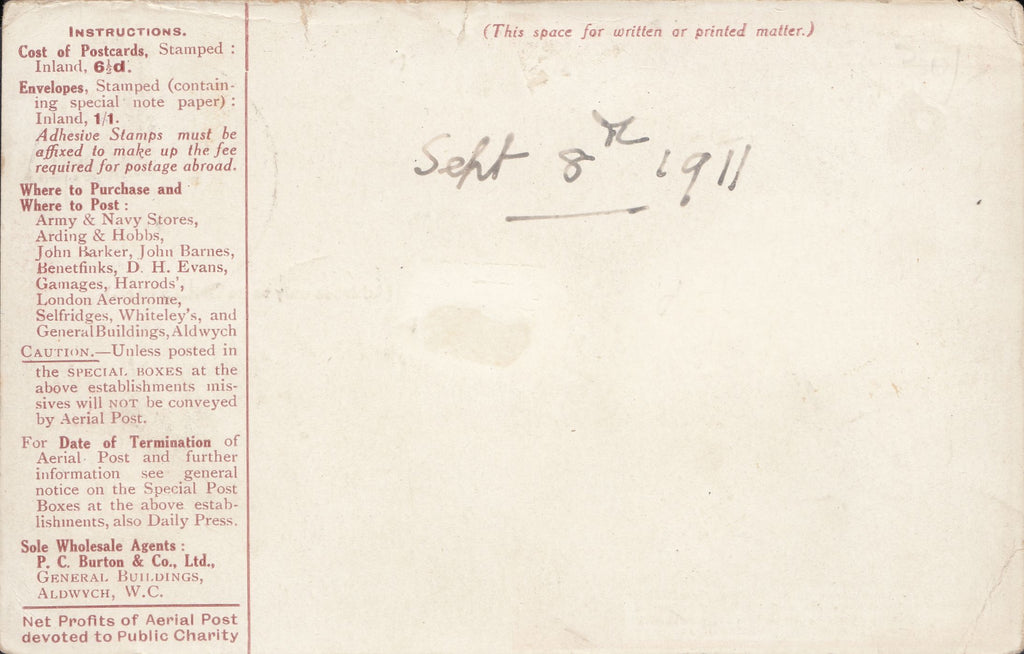 INSTRUCTIONS.
Cost of Postcards, Stamped :
Inland, 6½d.
Envelopes, Stamped (contain-
ing special note paper) :
Inland, 1/1.
Adhesive Stamps must be
affixed to make up the fee
required for postage abroad.
Where to Purchase and
Where to Post :
Army & Navy Stores,
Arding & Hobbs,
John Barker, John Barnes,
Benetfinks, D. H. Evans,
Gamages, Harrods',
London Aerodrome,
Selfridges, Whiteley's, and
General Buildings, Aldwych
CAUTION.—Unless posted in
the SPECIAL BOXES at the
above establishments mis-
sives will NOT be conveyed
by Aerial Post.
For Date of Termination of
Aerial Post and further
information see general
notice on the Special Post
Boxes at the above estab-
lishments, also Daily Press.
Sole Wholesale Agents :
P. C. Burton & Co., Ltd.,
GENERAL BUILDINGS,
ALDWYCH, W.C.
Net Profits of Aerial Post
devoted to Public Charity
(This space for written or printed matter.)
Sept 8th 1911